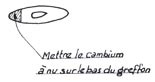 Mettre le cambium
à nu sur le bas du greffon